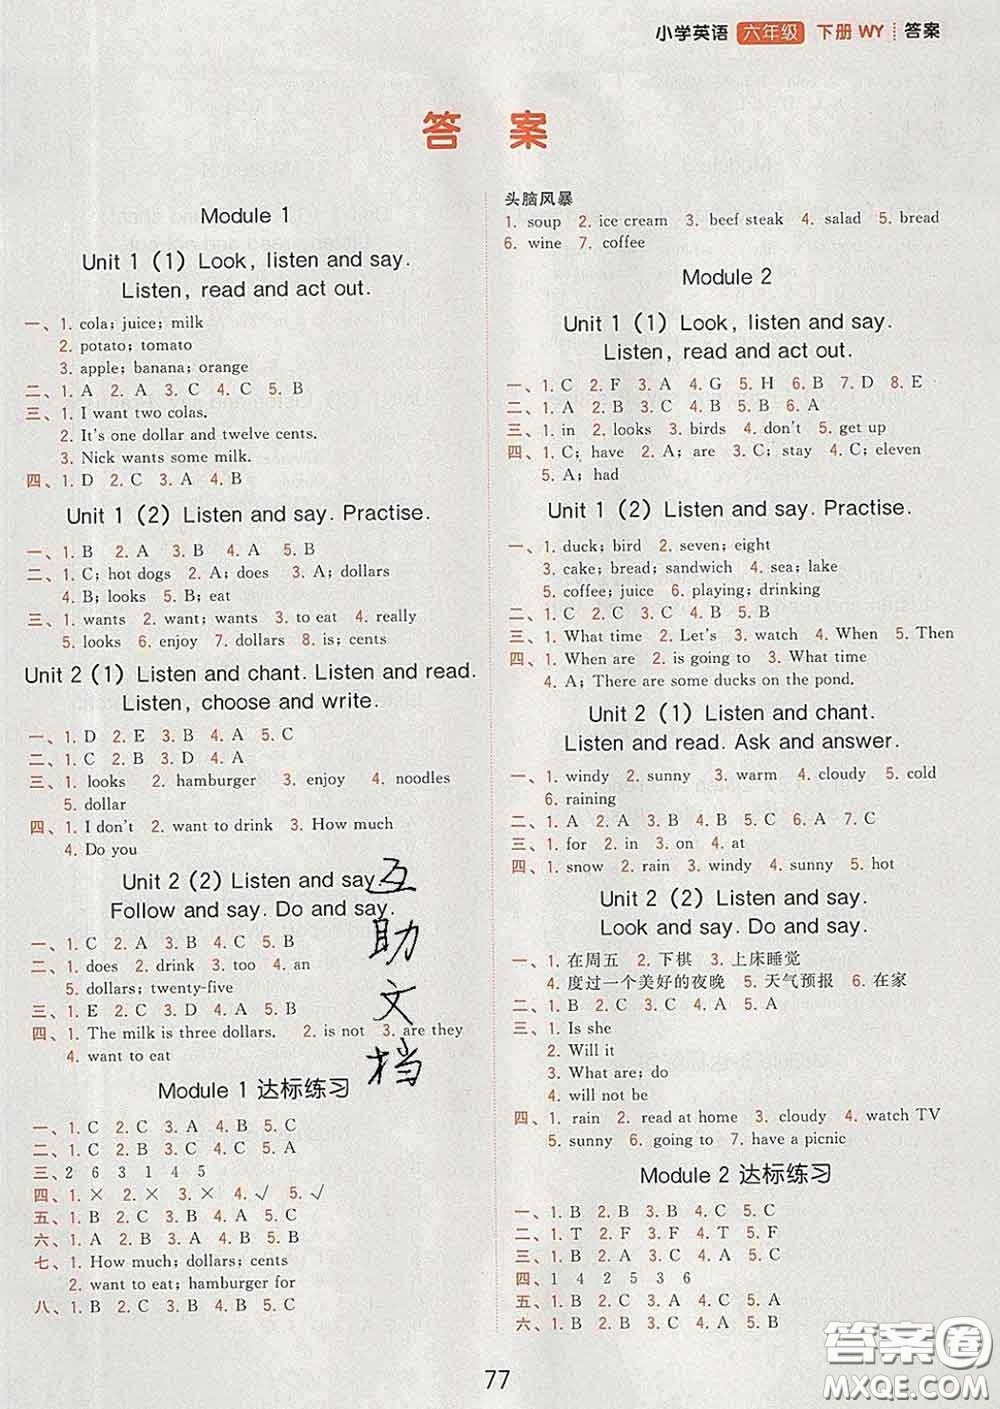 小学英语 六年级 下册 WY 答案
答 案
Module 1
Unit 1 (1) Look, listen and say.
Listen, read and act out.
一、1. cola; juice; milk
2. potato; tomato
3. apple; banana; orange
二、1. A 2. A 3. C 4. C 5. B
三、1. I want two colas.
2. It's one dollar and twelve cents.
3. Nick wants some milk.
四、1. D 2. C 3. A 4. B
Unit 1 (2) Listen and say. Practise.
一、1. B 2. A 3. B 4. A 5. B
二、1. C; hot dogs 2. A; does 3. A; dollars
4. B; looks 5. B; eat
三、1. wants 2. want; wants 3. to eat 4. really
5. looks 6. enjoy 7. dollars 8. is; cents
Unit 2 (1) Listen and chant. Listen and read.
Listen, choose and write.
一、1. D 2. E 3. B 4. A 5. C
二、1. C 2. B 3. D 4. A
三、1. looks 2. hamburger 3. enjoy 4. noodles
5. dollar
四、1. I don't 2. want to drink 3. How much
4. Do you
Unit 2 (2) Listen and say.
Follow and say. Do and say.
一、1. C 2. A 3. B 4. C 5. B
二、1. does 2. drink 3. too 4. an
5. dollars; twenty-five
三、1. E 2. C 3. D 4. A 5. B
四、1. The milk is three dollars. 2. is not 3. are they
4. want to eat
Module 1 达标练习
一、1. C 2. C 3. A 4. B 5. C
二、1. C 2. B 3. A 4. C 5. A
三、2 6 3 1 4 5
四、1. × 2. × 3. × 4. √ 5. √
五、1. B 2. C 3. B 4. A 5. C
六、1. A 2. B 3. C 4. B 5. B
七、1. How much; dollars; cents
2. want to eat; hamburger for
八、1. B 2. C 3. B 4. B 5. C
互
助
文
档
头脑风暴
1. soup 2. ice cream 3. beef steak 4. salad 5. bread
6. wine 7. coffee
Module 2
Unit 1 (1) Look, listen and say.
Listen, read and act out.
一、1. C 2. F 3. A 4. G 5. H 6. B 7. D 8. E
二、1. A 2. B 3. C 4. B 5. B 6. A
三、1. in 2. looks 3. birds 4. don't 5. get up
四、1. C; have 2. A; are 3. C; stay 4. C; eleven
5. A; had
Unit 1 (2) Listen and say. Practise.
一、1. duck; bird 2. seven; eight
3. cake; bread; sandwich 4. sea; lake
5. coffee; juice 6. playing; drinking
二、1. C 2. C 3. C 4. B 5. B
三、1. What time 2. Let's 3. watch 4. When 5. Then
四、1. When are 2. is going to 3. What time
4. A; There are some ducks on the pond.
Unit 2 (1) Listen and chant.
Listen and read. Ask and answer.
一、1. windy 2. sunny 3. warm 4. cloudy 5. cold
6. raining
二、1. A 2. A 3. B 4. B 5. C 6. A 7. C
三、1. for 2. in 3. on 4. at
四、1. snow 2. rain 3. windy 4. sunny 5. hot
Unit 2 (2) Listen and say.
Look and say. Do and say.
一、1. 在周五 2. 下棋 3. 上床睡觉
4. 度过一个美好的夜晚 5. 天气预报 6. 在家
二、1. B 2. C 3. B 4. C 5. A
三、1. Is she
2. Will it
3. What are; do
4. will not be
四、1. rain 2. read at home 3. cloudy 4. watch TV
5. sunny 6. going to 7. have a picnic
Module 2 达标练习
一、1. B 2. B 3. B 4. C 5. C
二、1. T 2. F 3. F 4. T 5. F
三、1. B 2. A 3. C 4. A 5. C
四、1 4 2 5 3 6
五、1. B 2. A 3. C 4. C 5. A
六、1. B 2. B 3. C 4. A 5. B
77
答案圈
MXQE.COM